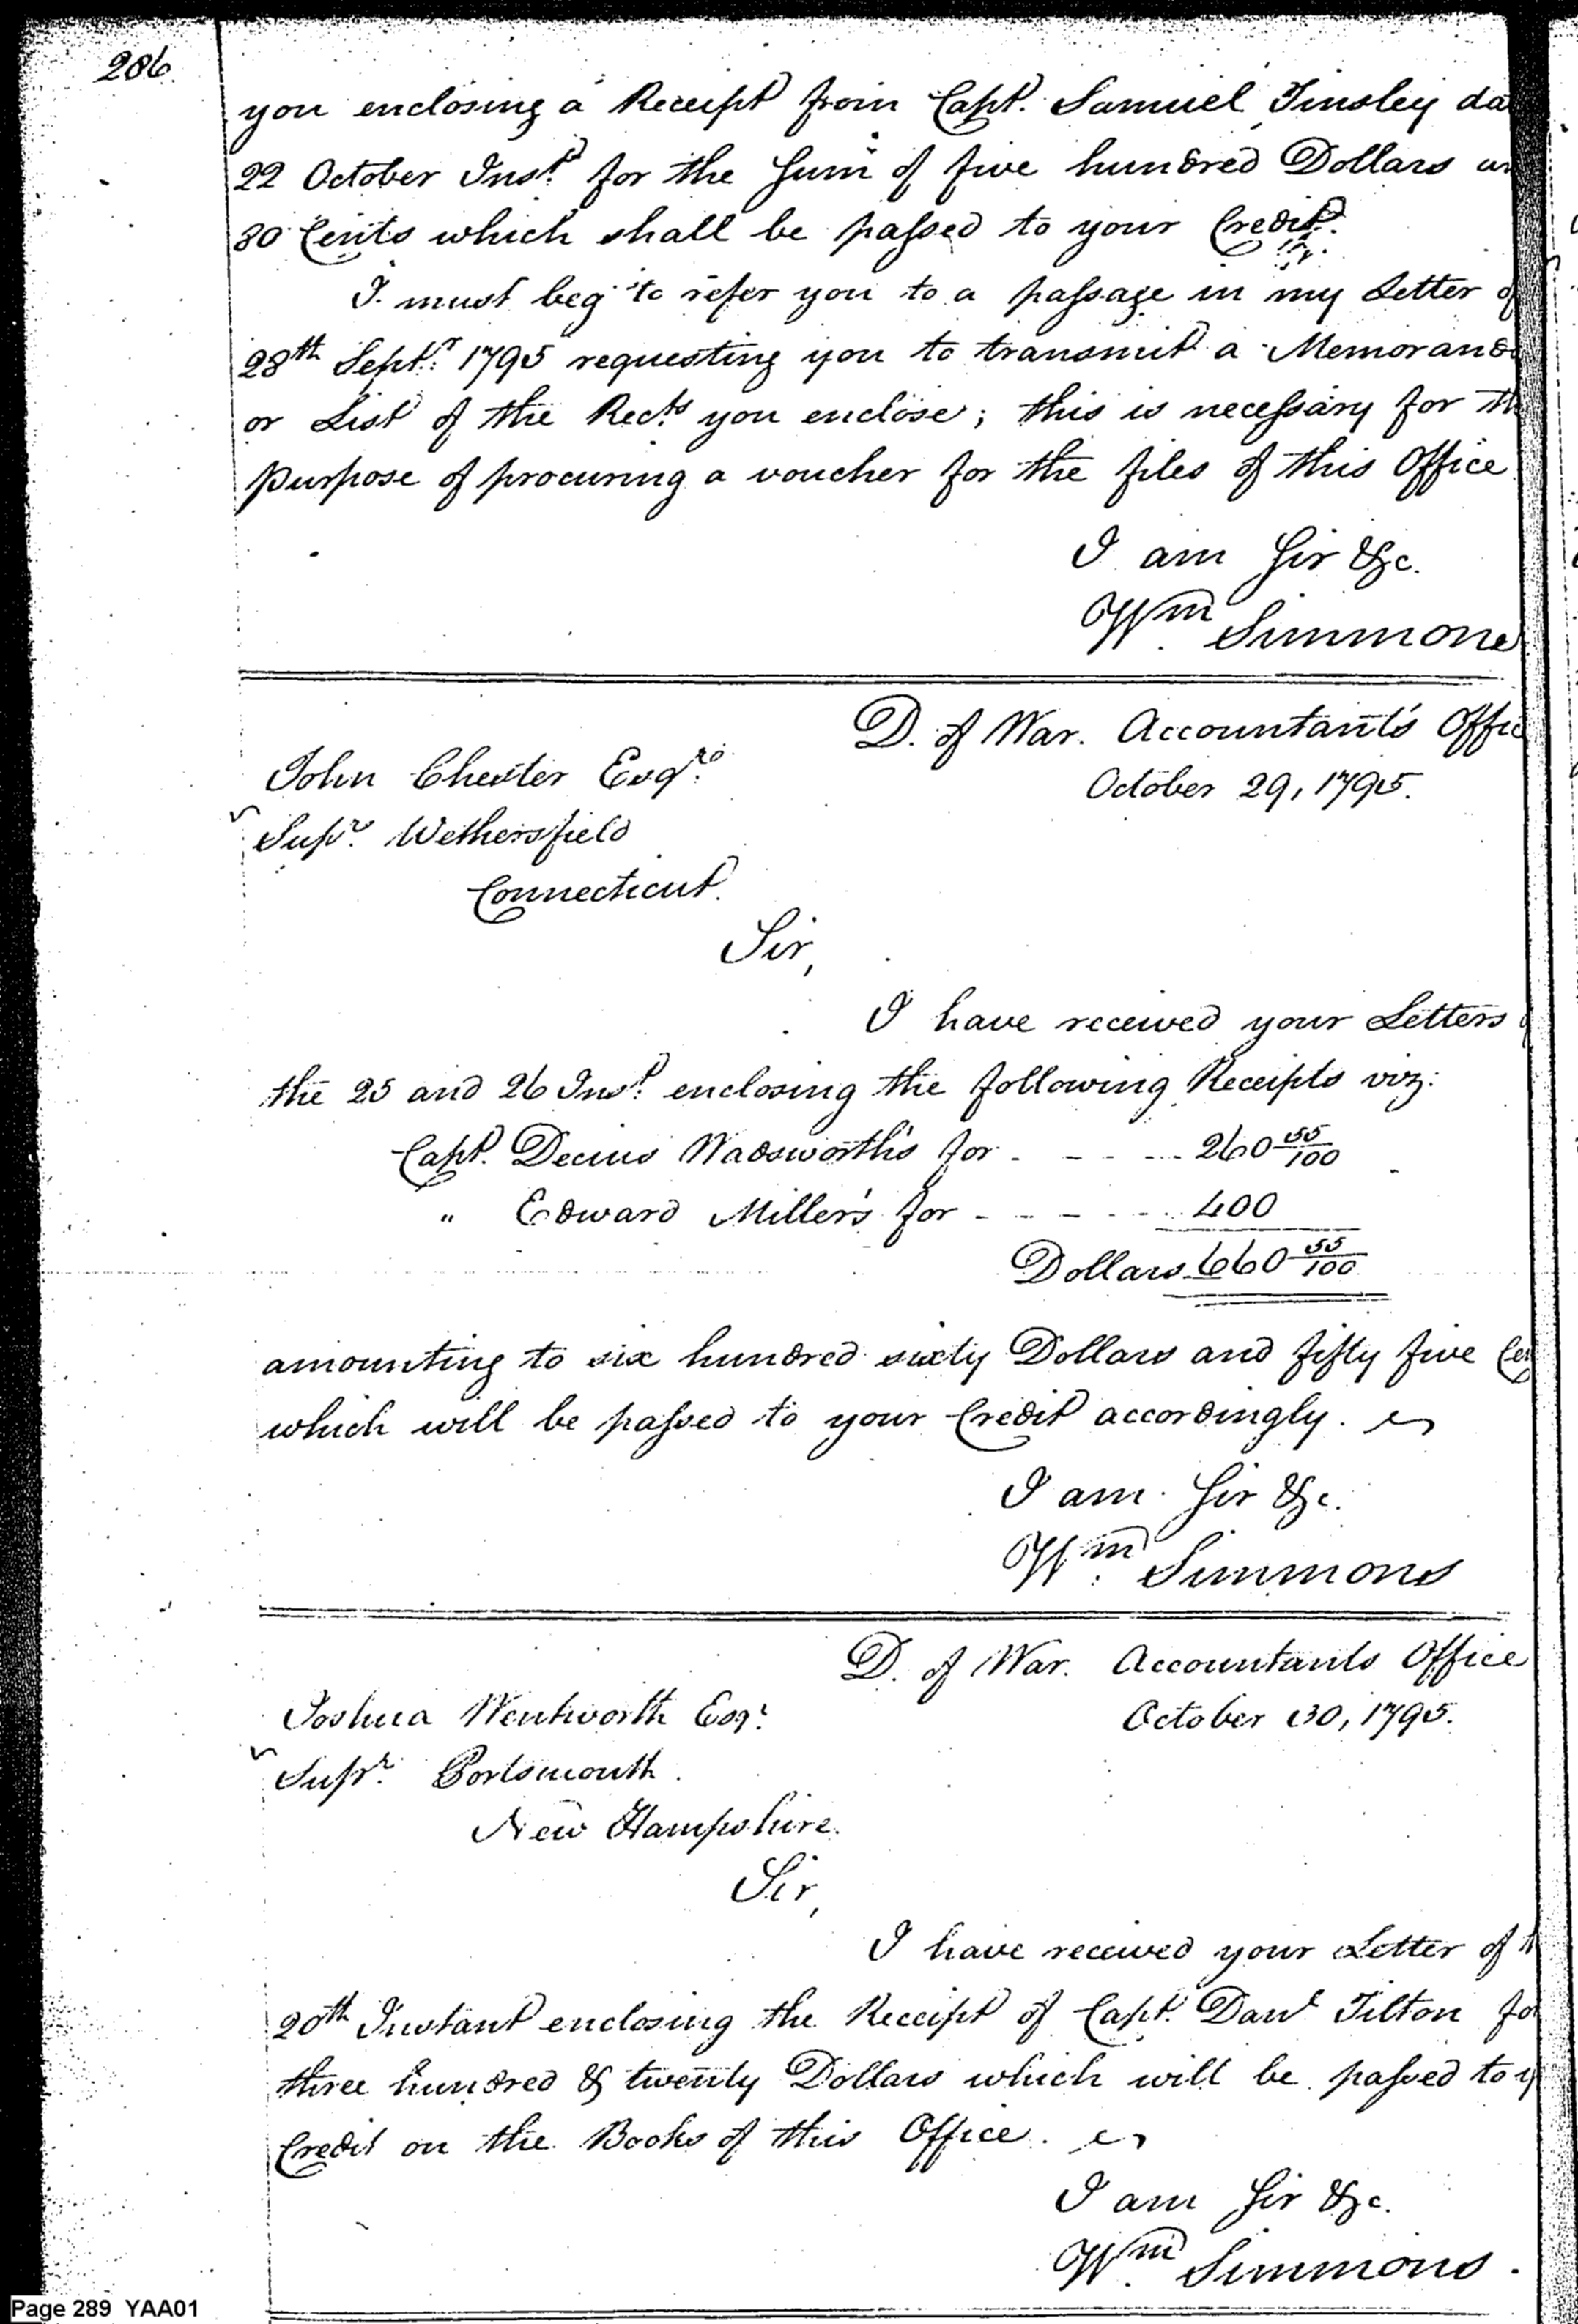 286.
you enclosing a Receipt from Capt. Samuel Tinsley da
22 October Inst. for the Sum of five hundred Dollars an
30 Cents which shall be passed to your Credit.
I must beg to refer you to a passage in my Letter of
28th Septr. 1795 requesting you to transmit a Memorand
or List of the Rects. you enclose; this is necessary for th
purpose of procuring a voucher for the files of this Office
I am Sir &c.
Wm. Simmons
D. of War. Accountant's Offic
John Chester Esqro.
October 29, 1795.
Supr. Wethersfield
Connecticut.
Sir,
I have received your Letters
the 25 and 26 Inst. enclosing the following Receipts viz:
Capt. Decius Wadsworth's for - - - - 260 55/100
" Edward Miller's for - - - - - - 400
Dollars 660 55/100
amounting to six hundred sixty Dollars and fifty five Cen
which will be passed to your Credit accordingly.
I am Sir &c.
Wm. Simmons
D. of War. Accountants Office
Joshua Wentworth Esqr.
October 30, 1795.
Supr. Portsmouth.
New Hampshire.
Sir,
I have received your Letter of t
20th Instant enclosing the Receipt of Capt. Danl Tilton fo
three hundred & twenty Dollars which will be passed to y
Credit on the Books of this Office.
I am Sir &c.
Wm. Simmons.
Page 289 YAA01